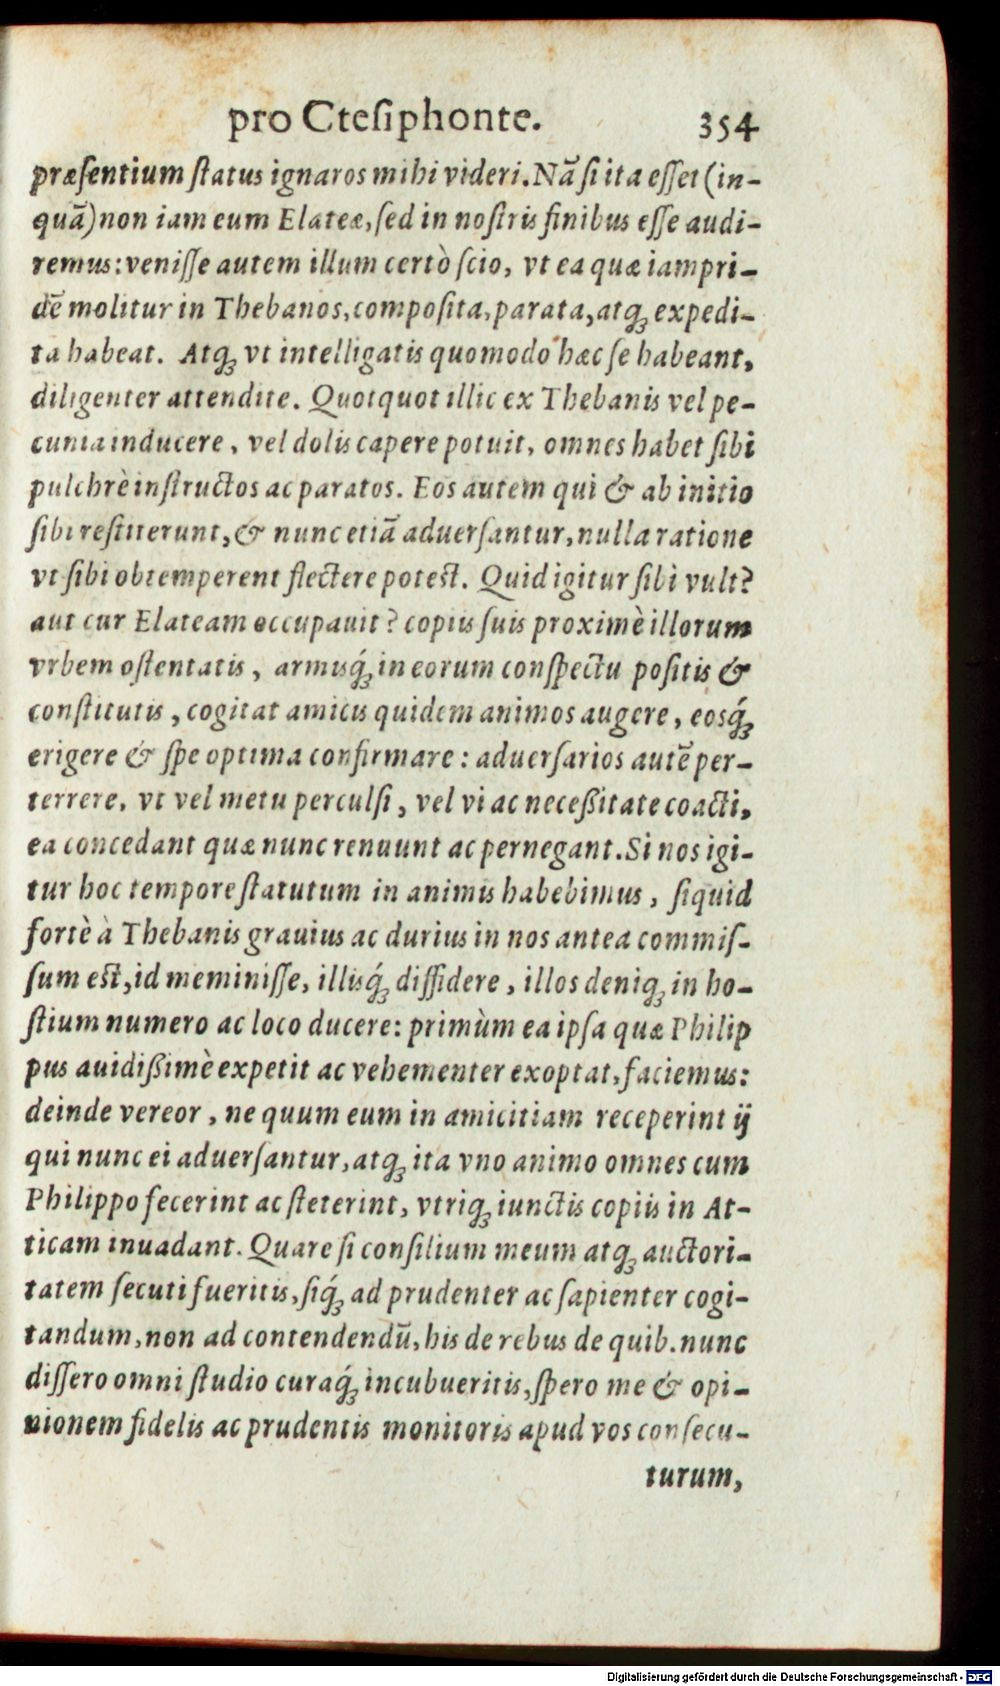 pro Cteſiphonte. 354
præſentium ſtatus ignaros mihi videri. Nã ſi ita eſſet (in-
quã) non iam eum Elateæ, ſed in noſtris finibus eſſe audi-
remus: veniſſe autem illum certò ſcio, vt ea quæ iampri-
dẽ molitur in Thebanos, compoſita, parata, atqꝫ expedi-
ta habeat. Atqꝫ vt intelligatis quomodo hæc ſe habeant,
diligenter attendite. Quotquot illic ex Thebanis vel pe-
cunia inducere, vel dolis capere potuit, omnes habet ſibi
pulchrè inſtructos ac paratos. Eos autem qui & ab initio
ſibi reſtiterunt, & nunc etiã aduerſantur, nulla ratione
vt ſibi obtemperent flectere poteſt. Quid igitur ſibi vult?
aut cur Elateam occupauit? copiis ſuis proximè illorum
vrbem oſtentatis, armisq́ꝫ in eorum conſpectu poſitis &
conſtitutis, cogitat amicis quidem animos augere, eosq́ꝫ
erigere & ſpe optima confirmare: aduerſarios autẽ per-
terrere, vt vel metu perculſi, vel vi ac neceßitate coacti,
ea concedant quæ nunc renuunt ac pernegant. Si nos igi-
tur hoc tempore ſtatutum in animis habebimus, ſiquid
fortè à Thebanis grauius ac durius in nos antea commiſ-
ſum eſt, id meminiſſe, illisq́ꝫ diffidere, illos deniqꝫ in ho-
ſtium numero ac loco ducere: primùm ea ipſa quæ Philip
pus auidißimè expetit ac vehementer exoptat, faciemus:
deinde vereor, ne quum eum in amicitiam receperint ij
qui nunc ei aduerſantur, atqꝫ ita vno animo omnes cum
Philippo fecerint ac ſteterint, vtriqꝫ iunctis copiis in At-
ticam inuadant. Quare ſi conſilium meum atqꝫ auctori-
tatem ſecuti fueritis, ſiq́ꝫ ad prudenter ac ſapienter cogi-
tandum, non ad contendendũ, his de rebus de quib. nunc
diſſero omni ſtudio curaq́ꝫ incubueritis, ſpero me & opi-
nionem fidelis ac prudentis monitoris apud vos conſecu-
turum,
Digitalisierung gefördert durch die Deutsche Forschungsgemeinschaft - DFG